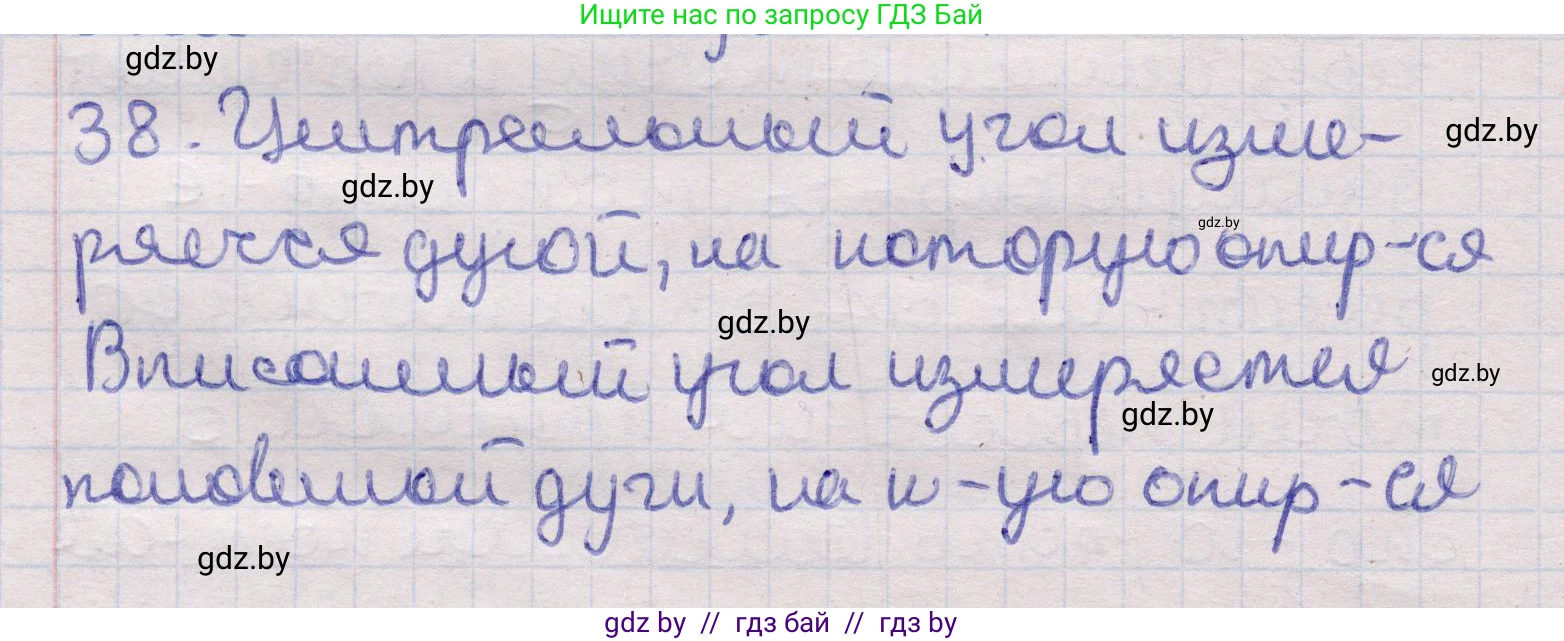 Ищите нас по запросу ГДЗ Бай
gdz.by
38. Центральный угол изме-
gdz.by
gdz.by
gdz.by
ряется дугой, на которую опир-ся
gdz.by
Вписанный угол измеряется
gdz.by
gdz.by
половиной дуги, на к-ую опир-ся
gdz.by
gdz by // гдз бай // гдз by